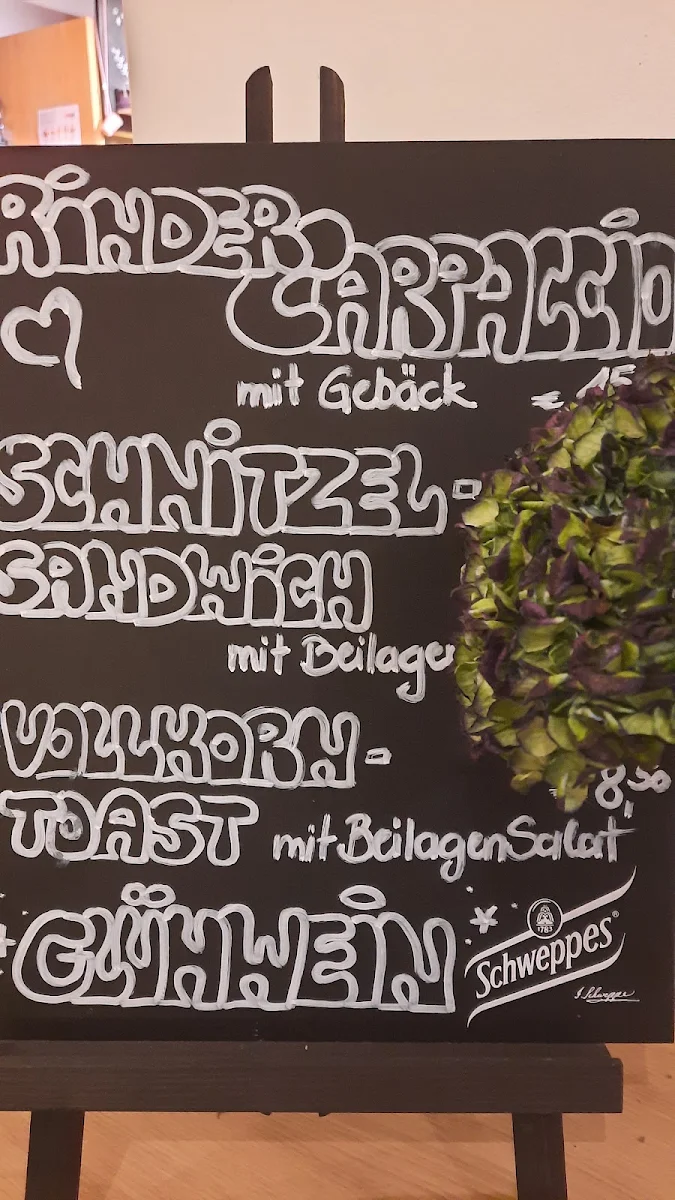 RINDER
CARPACCIO
mit Gebäck € 15
SCHNITZEL-
SANDWICH
mit Beilage
VOLLKORN-
8,50
TOAST mit BeilagenSalat
GLÜHWEIN
1783
Schweppes®
J. Schweppe